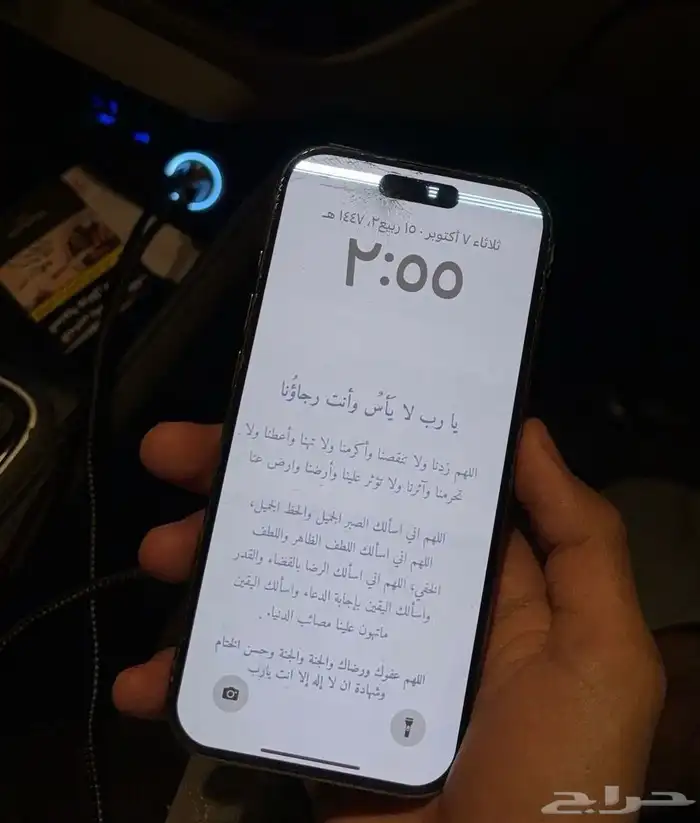 ثلاثاء ٧ أكتوبر · ١٥ ربيع٢، ١٤٤٧ هـ
٢:٥٥
يا رب لا يَأسُ وأنت رجاؤُنا
اللهم زدنا ولا تنقصنا وأكرمنا ولا تهنا وأعطنا ولا
تحرمنا وآثرنا ولا تؤثر علينا وأرضنا وارض عنا
اللهم اني اسألك الصبر الجميل والحظ الجميل،
اللهم اني اسألك اللطف الظاهر واللطف
الخفي، اللهم اني اسألك الرضا بالقضاء والقدر
واسألك اليقين بإجابة الدعاء واسألك اليقين
ماتهون علينا مصائب الدنيا، .
اللهم عفوك ورضاك والجنة والجنة وحسن الختام
وشهادة ان لا إله إلا انت يارب
حراج